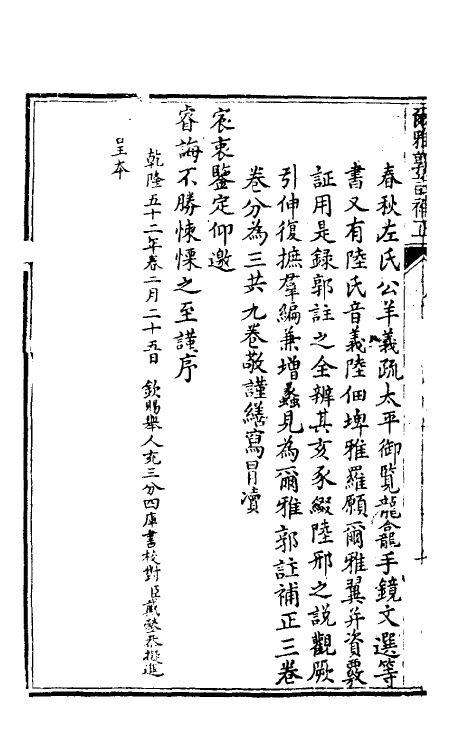 爾雅郭註補正
春秋左氏公羊義疏太平御覽龍龕手鏡文選等
書又有陸氏音義陸佃埤雅羅願爾雅翼并資覈
証用是録郭註之全辨其亥豕綴陸邢之説觀厥
引伸復摭羣編兼增蠡見為爾雅郭註補正三卷
卷分為三共九卷敬謹繕寫冒瀆
宸衷鑒定仰邀
睿誨不勝悚慄之至謹序
乾隆五十二年春二月二十五日 欽賜舉人充三分四庫書校對臣戴鎣恭擬進
呈本